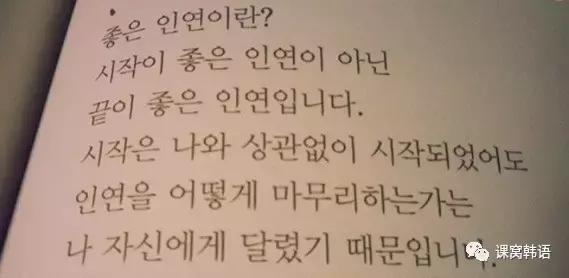 좋은 인연이란?
시작이 좋은 인연이 아닌
끝이 좋은 인연입니다.
시작은 나와 상관없이 시작되었어도
인연을 어떻게 마무리하는가는
나 자신에게 달렸기 때문입니다.
课窝韩语